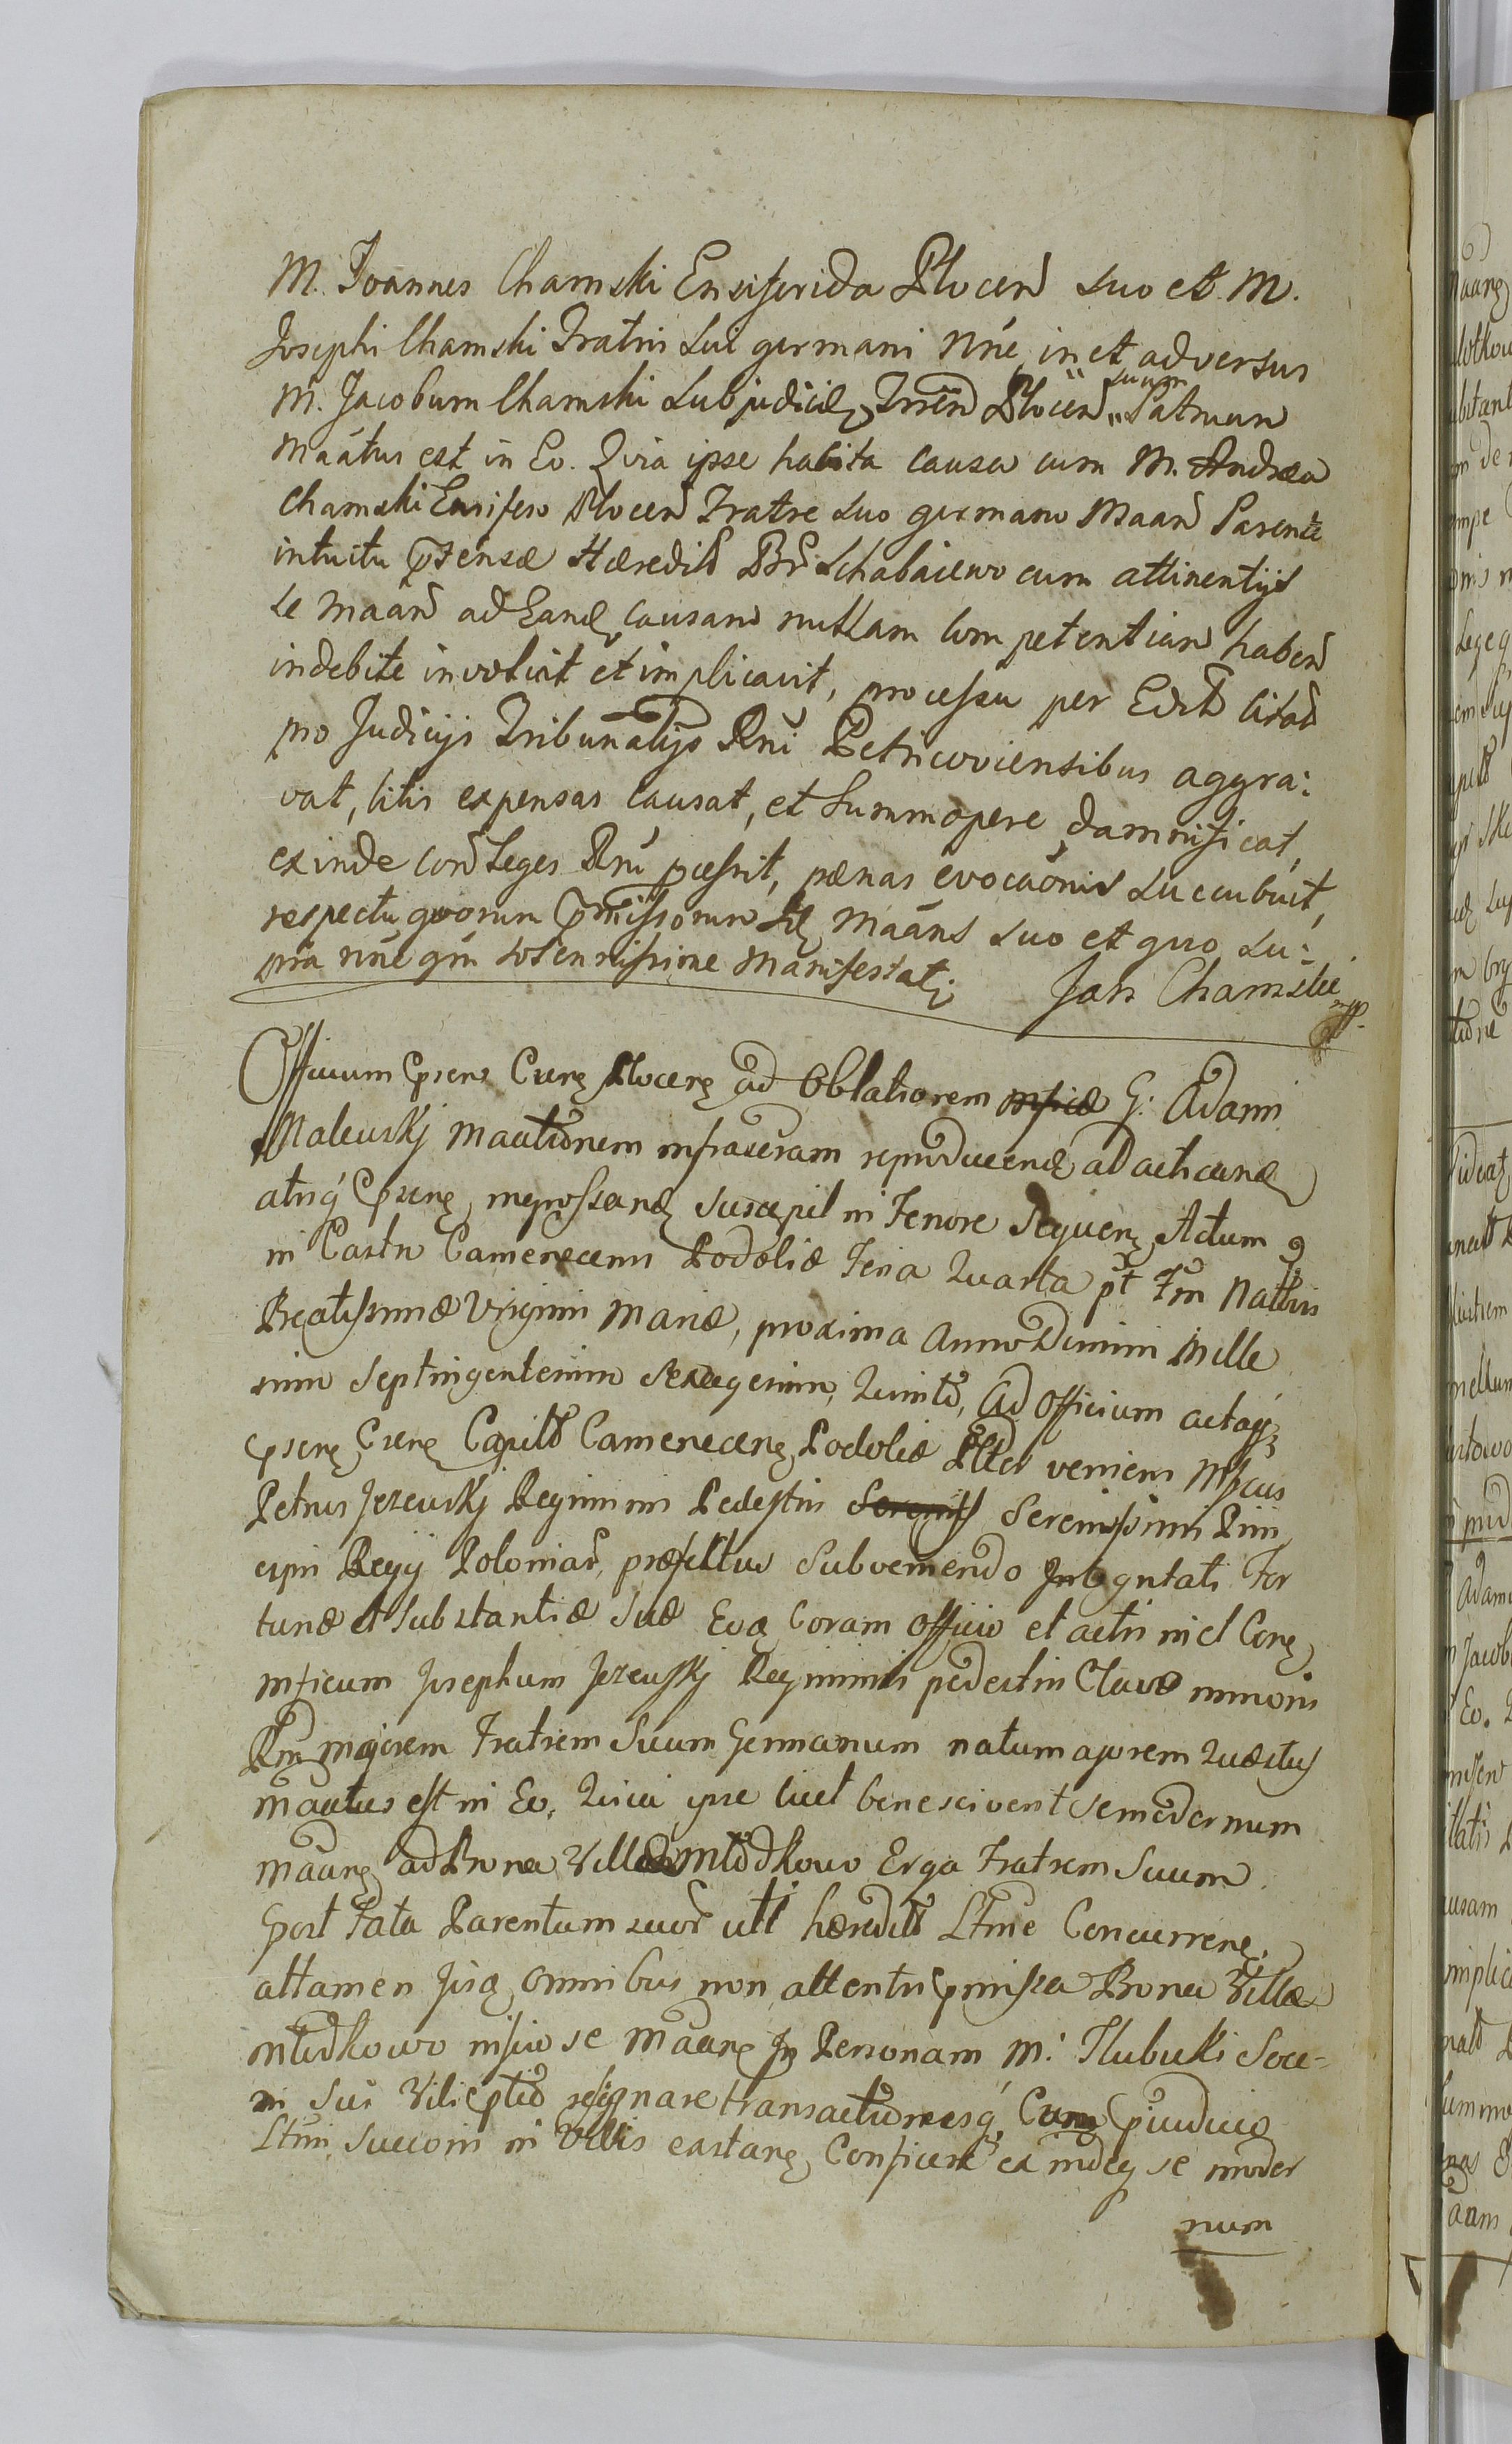 M. Joannes Chamski Ensiferida Plocen suo et M.
Josephi Chamski Fratris sui germani nne, in et adversus
M. Jacobum Chamski Subjudicem Trren Plocen suum Patruum
Maatus est in Eo. Quia ipse habita causa cum M. Andrea
Chamski Ensifero Plocen Fratre suo germano Maan Parente
intuitu ptensæ Hæredit Br Schabaiewo cum attinentijs
se Maan ad eand causam nullam competentiam haben
indebite involvit et implicavit, processu per Edit Citad
pro Judicijs Tribunalijs Rni Petricoviensibus aggra:
vat, litis expensas causat, et summopere damnificat,
exinde con Leges Rni pcessit, pænas evocaonis succubuit,
respectu quorum pmissorum Maans suo et quo su:
pra nne qm solennissime Manifestat;
Jan Chamski mpp.
Officium psens Crense Plocense ad Oblationem G: Adami
Malewskj Maaõnem infrascram reproducend ad acticand
atq psens ingrossand suscepit in Tenore Sequen Actum
in Castro Camenecensi Podoliæ Feria Quarta pt Fm Nattis
Beatissimæ Virginis Mariæ, proxima Anno Domini Mille
simo septingentesimo sexagesimo, Quinto, Ad Officium actaq
psens Crens Capitt Camenecens Podoliæ Pltr veniens Mficus
Petrus Jezewskj Regiminis Pedestris Serenissimi Prin
cipis Regij Poloniar, præfectus Subveniendo Integritati For
tunæ et Substantiæ Suæ Eoq Coram Officio et actis in et Con
Mficum Josephum Jezewskj Regiminis pedestris Clavæ minoris
Rni majorem Fratrem Suum Germanum natu majorem Quæstus
maatus est in Eo, Quia ipse licet bene sciverit se modernum
maan ad Bona Villæ Mlodkowo Erga Fratrem Suum
post Fata Parentum suor uti hæredit Ltme Concurren,
attamen hisq omnibus non attentis pmissa Bona Villæ
Mlodkowo inscio se Maan in Personam M: Hlubicki Soce-
ri Sui Vili ptio resignare transactionesq, Cum pjudicio
Ltmi Succoris in Villis extare, Conficere exindeq se moder
num